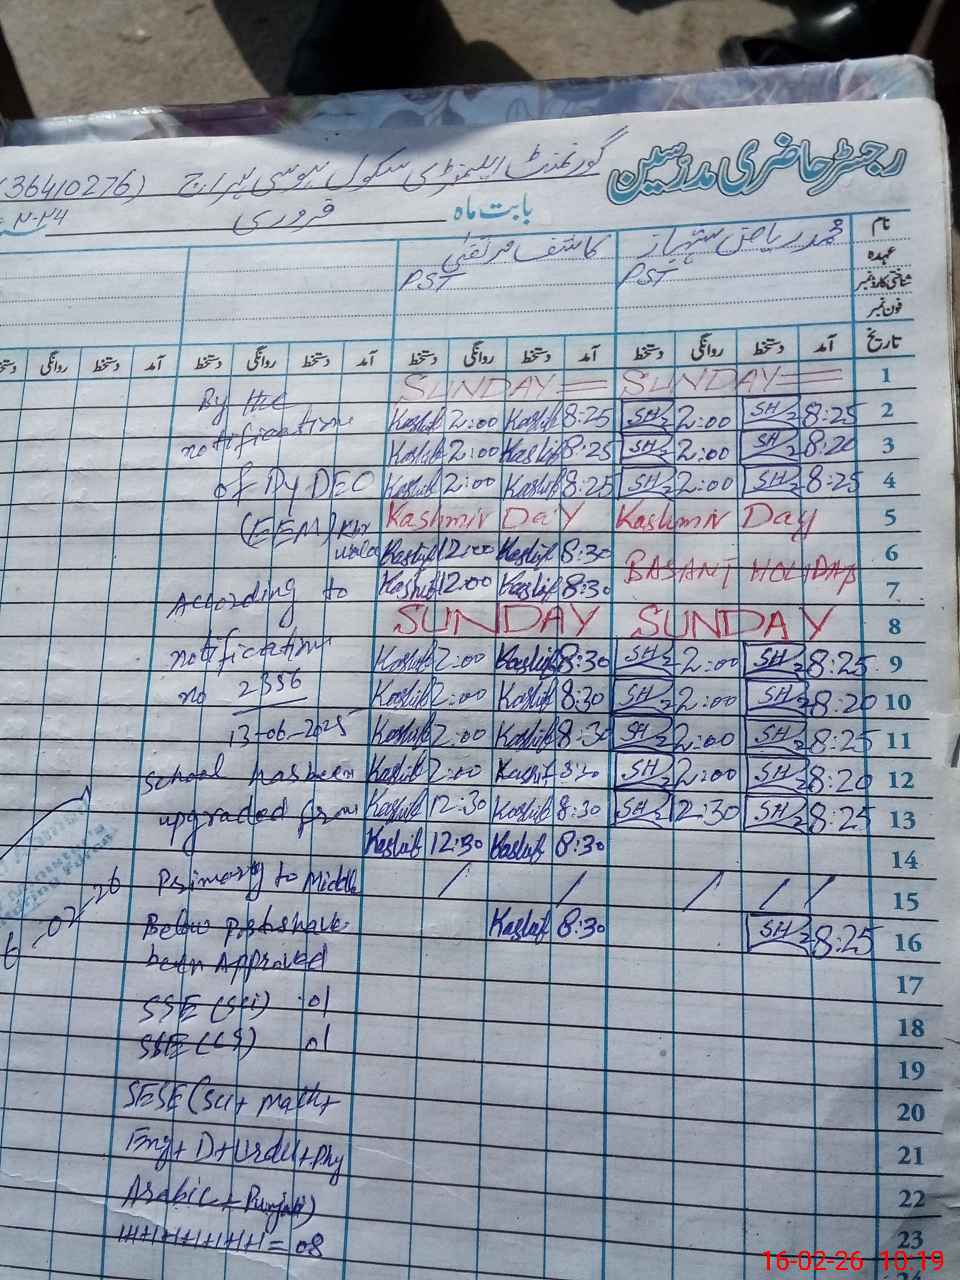 رجسٹر حاضری مدرسین
گورنمنٹ ایلیمنٹری سکول (36410276)
بابت ماہ فروری
نام محمد ریاض شہباز کاشف مرتضیٰ
عہدہ PST PST
شناختی کارڈ نمبر
فون نمبر
تاریخ آمد دستخط روانگی دستخط آمد دستخط روانگی دستخط آمد دستخط روانگی دستخط آمد دستخط روانگی
SUNDAY = SUNDAY = 1
Kashif 2:00 Kashif 8:25 SH 2:00 SH 8:25 2
Kashif 2:00 Kashif 8:25 SH 2:00 SH 8:20 3
Kashif 2:00 Kashif 8:25 SH 2:00 SH 8:25 4
Kashmir Day Kashmir Day 5
Kashif 12:00 Kashif 8:30 6
BASANT HOLIDAYS
Kashif 12:00 Kashif 8:30 7
SUNDAY SUNDAY 8
Kashif 2:00 Kashif 8:30 SH 2:00 SH 8:25 9
Kashif 2:00 Kashif 8:30 SH 2:00 SH 8:20 10
Kashif 2:00 Kashif 8:30 SH 2:00 SH 8:25 11
Kashif 2:00 Kashif 8:30 SH 2:00 SH 8:20 12
Kashif 12:30 Kashif 8:30 SH 12:30 SH 8:25 13
Kashif 12:30 Kashif 8:30 14
15
Kashif 8:30 SH 8:25 16
17
18
19
20
21
22
23
By the
notification
of Dy DEO
(EEM)
According to
notification
no 2356
13-06-2025
school has been
upgraded from
Primary to Middle
Below posts have
been Approved
SSE (Sci) 01
SSE (CS) 01
SESE (Sci + math +
Eng + D + Urdu + Phy
Arabic + Punjabi)
1+1+1+1+1+1+1+1 = 08
16-02-26 10:19